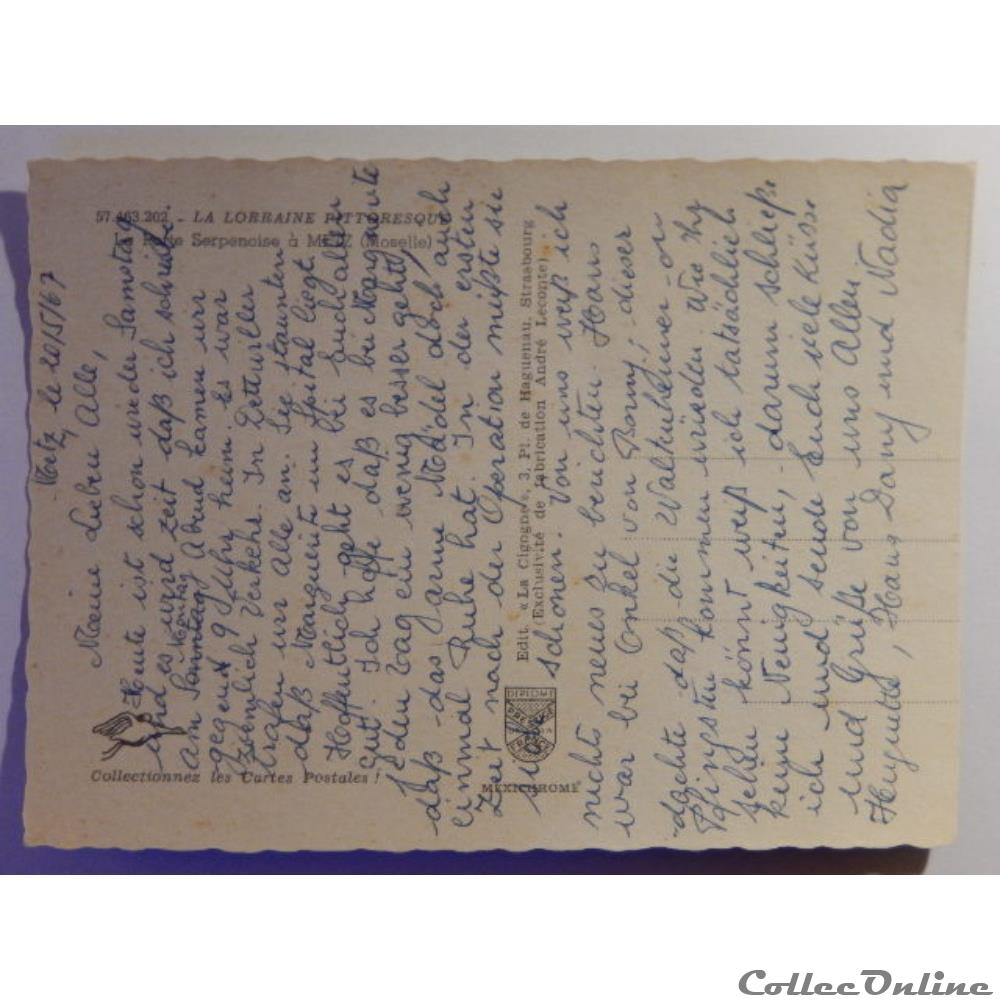 57.463.202 - LA LORRAINE PITTORESQUE
La Porte Serpenoise à METZ (Moselle)
Metz, le 20/5/67
Meine Lieben Alle,
Heute ist schon wieder Samstag
und es wird zeit daß ich schreibe.
Am Montag Abend kamen wir
gegen 9 Uhr heim. Es war
ziemlich Verkehr. In Dettwiller
trafen wir Alle an. Sie staunten
daß Marguerite im Spital liegt.
Hoffentlich geht es bei Euch allen
gut. Ich hoffe daß es bei Marguerite
jeden Tag ein wenig besser geht,
daß das arme Mädel doch auch
einmal Ruhe hat. In der ersten
Zeit nach der Operation müßte sie
sich schonen. Von uns weiß ich
nichts neues zu berichten. Hans
war bei Onkel von Borny; dieser
dachte daß die
Pfingsten kommen würden. Wie Ihr
sehen könnt weiß ich tatsächlich
kein Neuigkeiten, darum schließe
ich und sende Euch viele Küsse
und Grüße von uns Allen
Huguette, Hans Dany und Nadia
Edit. «La Cigogne», 3, Pl. de Haguenau, Strasbourg
(Exclusivité de fabrication André Leconte)
Collectionnez les Cartes Postales !
MEXICHROME
CollecOnline